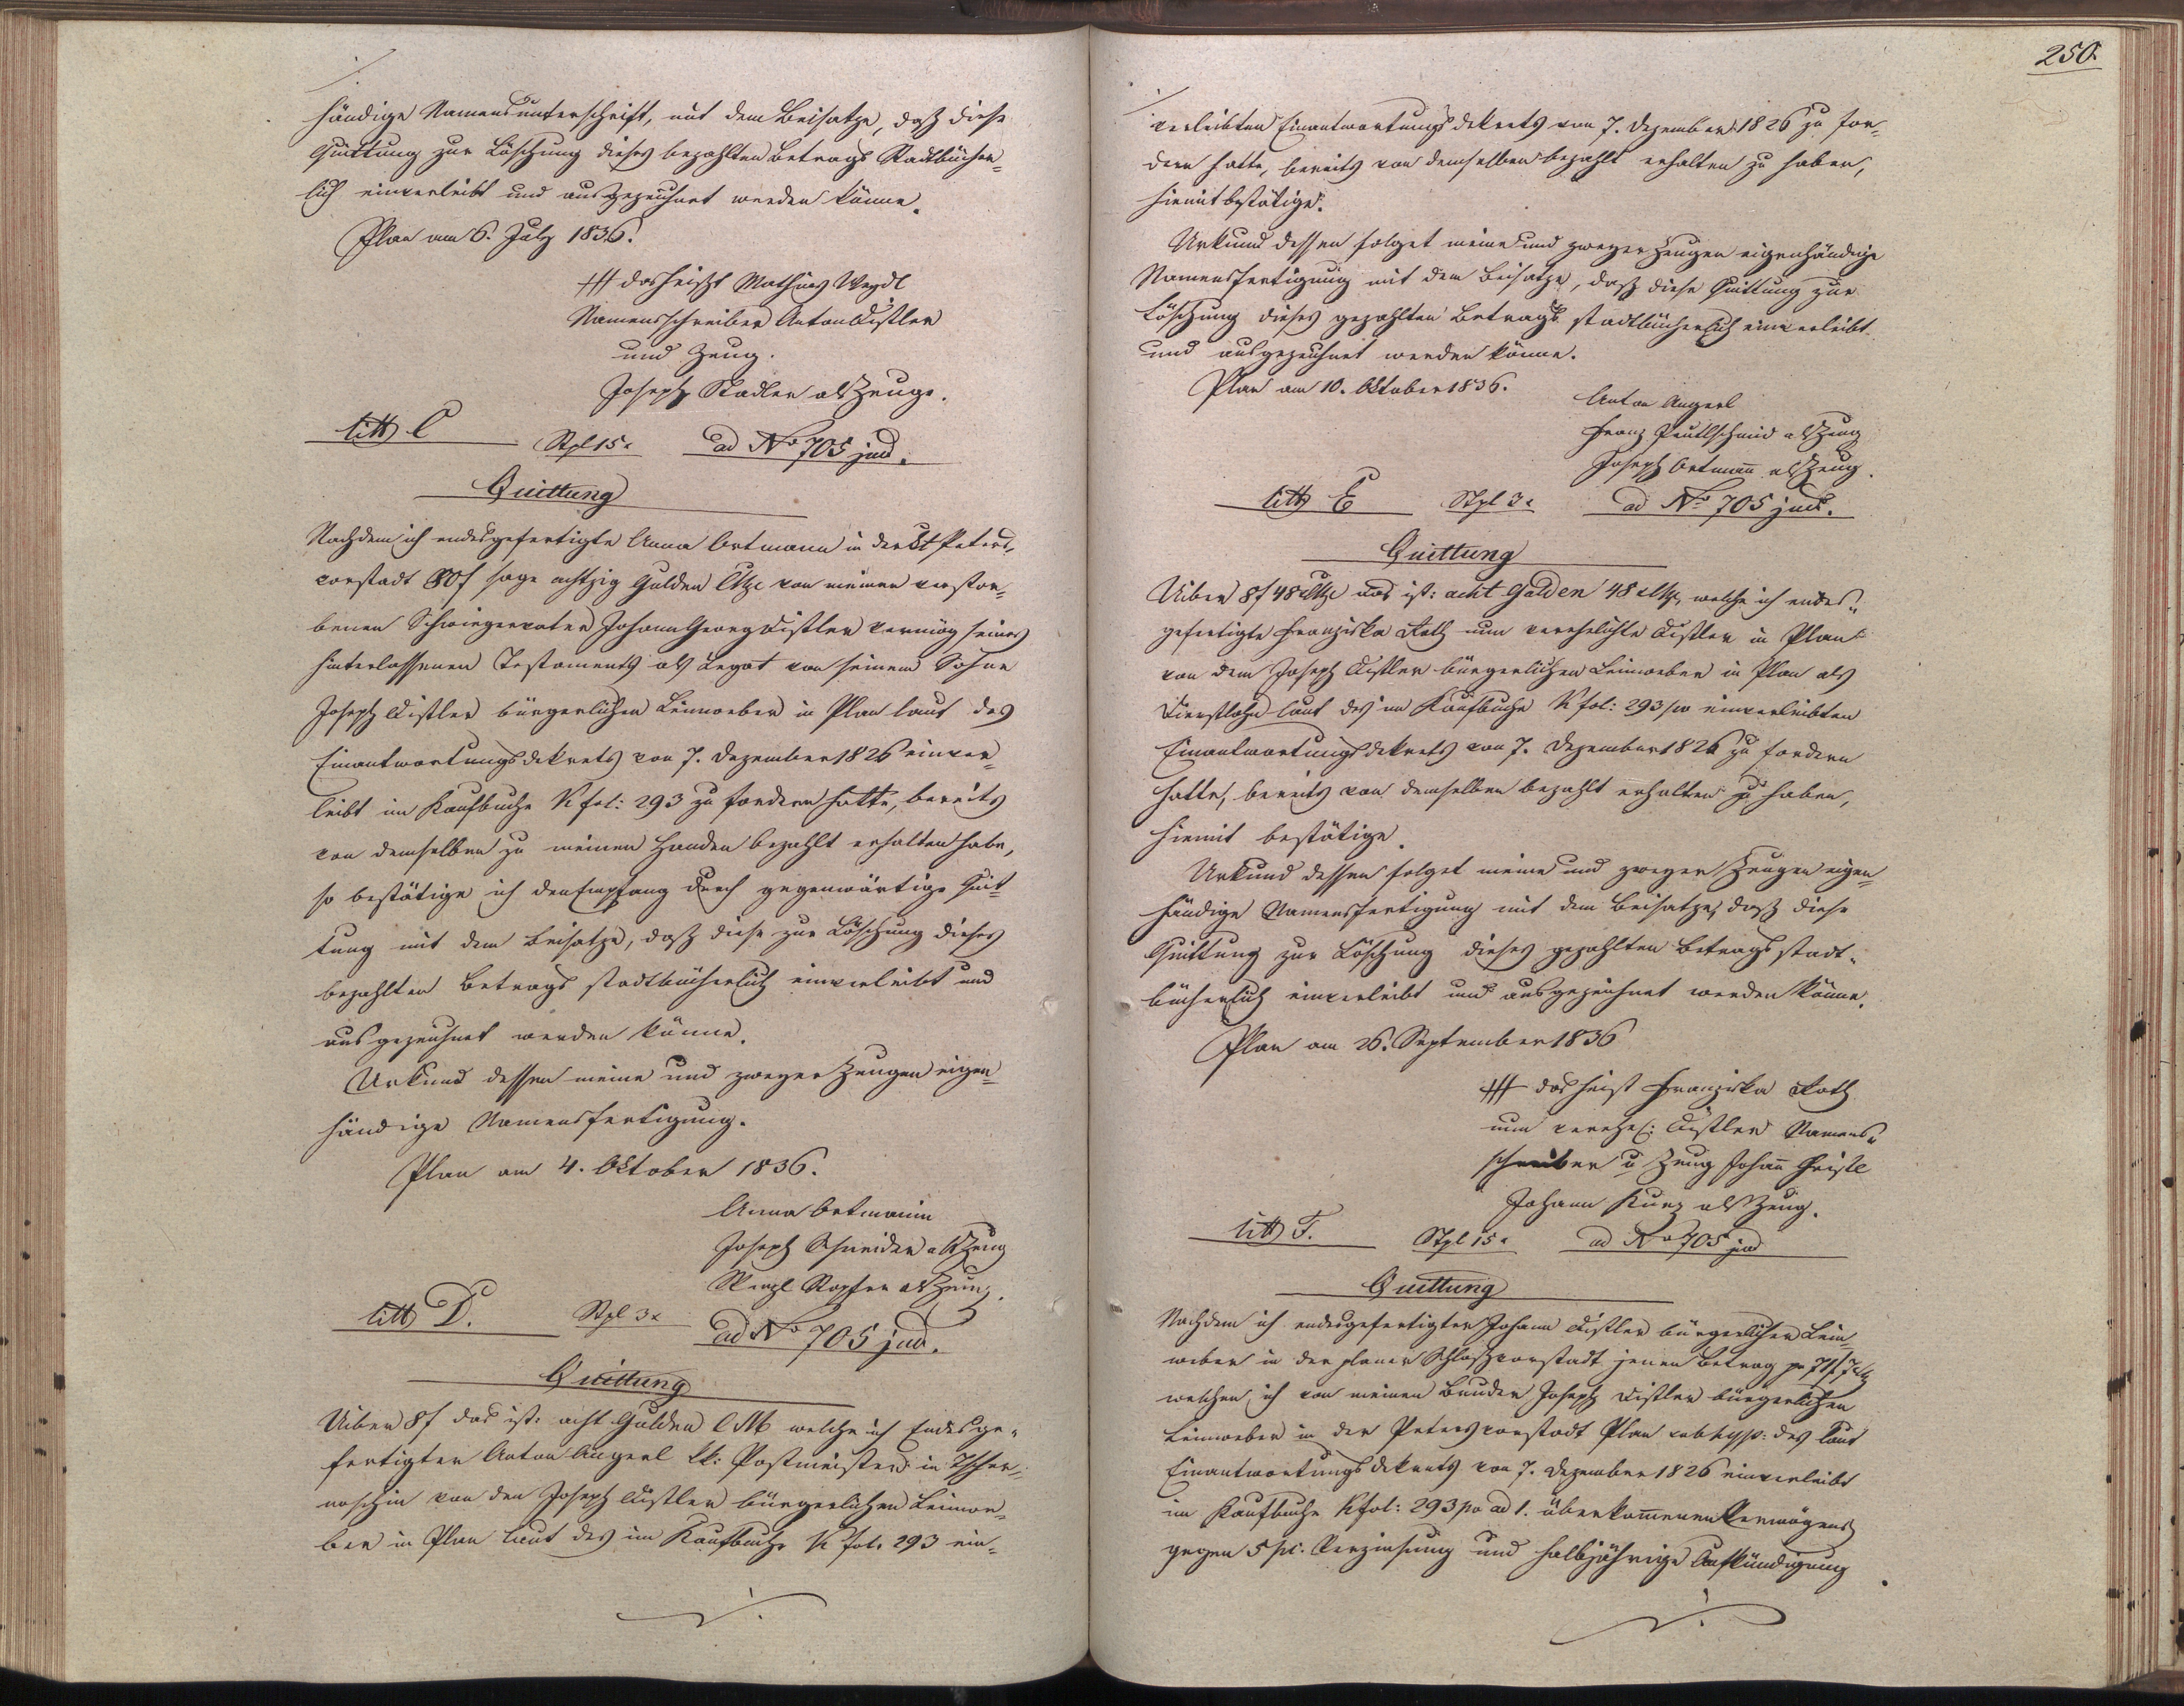 händige Namensunterschrift, mit dem Beisatze, daß diese
Quittung zur Löschung dieses bezahlten Betrags Stadtbücher=
lich einverleibt und ausgezeichnet werden könne.
Plan am 6. July 1836.
+++ das heißt Mathias Weydl
Namensschreiber Anton Distler
und Zeug.
Joseph Stadler als Zeuge.
litt C Stpl 15x ad No 705 jud.
Quittung
Nachdem ich endesgefertigte Anna Ortmann in der St Peters=
vorstadt 80f sage achtzig Gulden CMze von meinem verstor=
benen Schwiegervater Johann Georg Distler vermög seines
hinterlassenen Testaments als Legat von seinem Sohne
Joseph Distler bürgerlichen Leinweber in Plan laut des
Einantwortungsdekrets von 7. Dezember 1826 einver=
leibt im Kaufbuche K fol: 293 zu fordern hatte, bereits
von demselben zu meinen Handen bezahlt erhalten habe,
so bestätige ich den Empfang durch gegenwärtige Quit=
tung mit dem Beisatze, daß diese zur Löschung dieses
bezahlten Betrags stadtbücherlich einverleibt und
ausgezeichnet werden könne.
Urkund dessen meine und zweyer Zeugen eigen=
händige Namensfertigung.
Plan am 4. Oktober 1836.
Anna Ortmanin
Joseph Schneider als Zeug
Wenzl als Zeug.
litt D. Stpl 3x ad No 705 jud.
Quittung
Uiber 8f das ist: acht Gulden CM welche ich Endesge=
fertigter Anton Angerl kk: Postmeister in Tscher=
noschin von den Joseph Distler bürgerlichen Leinwe=
ber in Plan laut des im Kaufbuche K fol. 293 ein=
./.
250.
./.
verleibten Einantwortungsdekrets von 7. Dezember 1826 zu for=
dern hatte, bereits von demselben bezahlt erhalten zu haben,
hiemit bestätige.
Urkund dessen folget meine und zweyer Zeugen eigenhändige
Namensfertigung mit dem Beisatze, daß diese Quittung zur
Löschung dieses gezahlten Betrags stadtbücherlich einverleibt
und ausgezeichnet werden könne.
Plan am 10. Oktober 1836.
Anton Angerl
Franz als Zeug
Joseph Ortmañ als Zeug.
litt E Stpl 3x ad No 705 jud.
Quittung
Uiber 8f 48x CMze das ist: acht Gulden 48x CMze, welche ich endes=
gefertigte Franziska Roth nun verehelichte Distler in Plan
von dem Joseph Distler bürgerlichen Leinweber in Plan als
Dienstlohn laut des im Kaufbuche K fol: 293 po einverleibten
Einantwortungsdekrets von 7. Dezember 1826 zu fordern
hatte, bereits von demselben bezahlt erhalten zu haben,
hiemit bestätige.
Urkund dessen folget meine und zweyer Zeugen eigen=
händige Namensfertigung mit dem Beisatze, daß diese
Quittung zur Löschung dieses gezahlten Betrags stadt=
bücherlich einverleibt und ausgezeichnet werden könne.
Plan am 26. September 1836
+++ das heist Franziska Roth
nun verehel: Distler Namens=
schreiber u Zeug Johañ Christl
Johann Kunz als Zeug.
litt F. Stpl 15x ad No 705 jud
Quittung
Nachdem ich endesgefertigter Johann Distler bürgerlicher Lein=
weber in der planer Schloßvorstadt jenen Betrag pr 71f 7x
welchen ich von meinen Bruder Joseph Distler bürgerlichen
Leinweber in der Petersvorstadt Plan des laut
Einantwortungsdekrets von 7. Dezember 1826 einverleibt
im Kaufbuche K fol: 293 po ad 1. überkom̃enen Vermögens
gegen 5 pc. Verzinsung und halbjährige Aufkündigung
./.